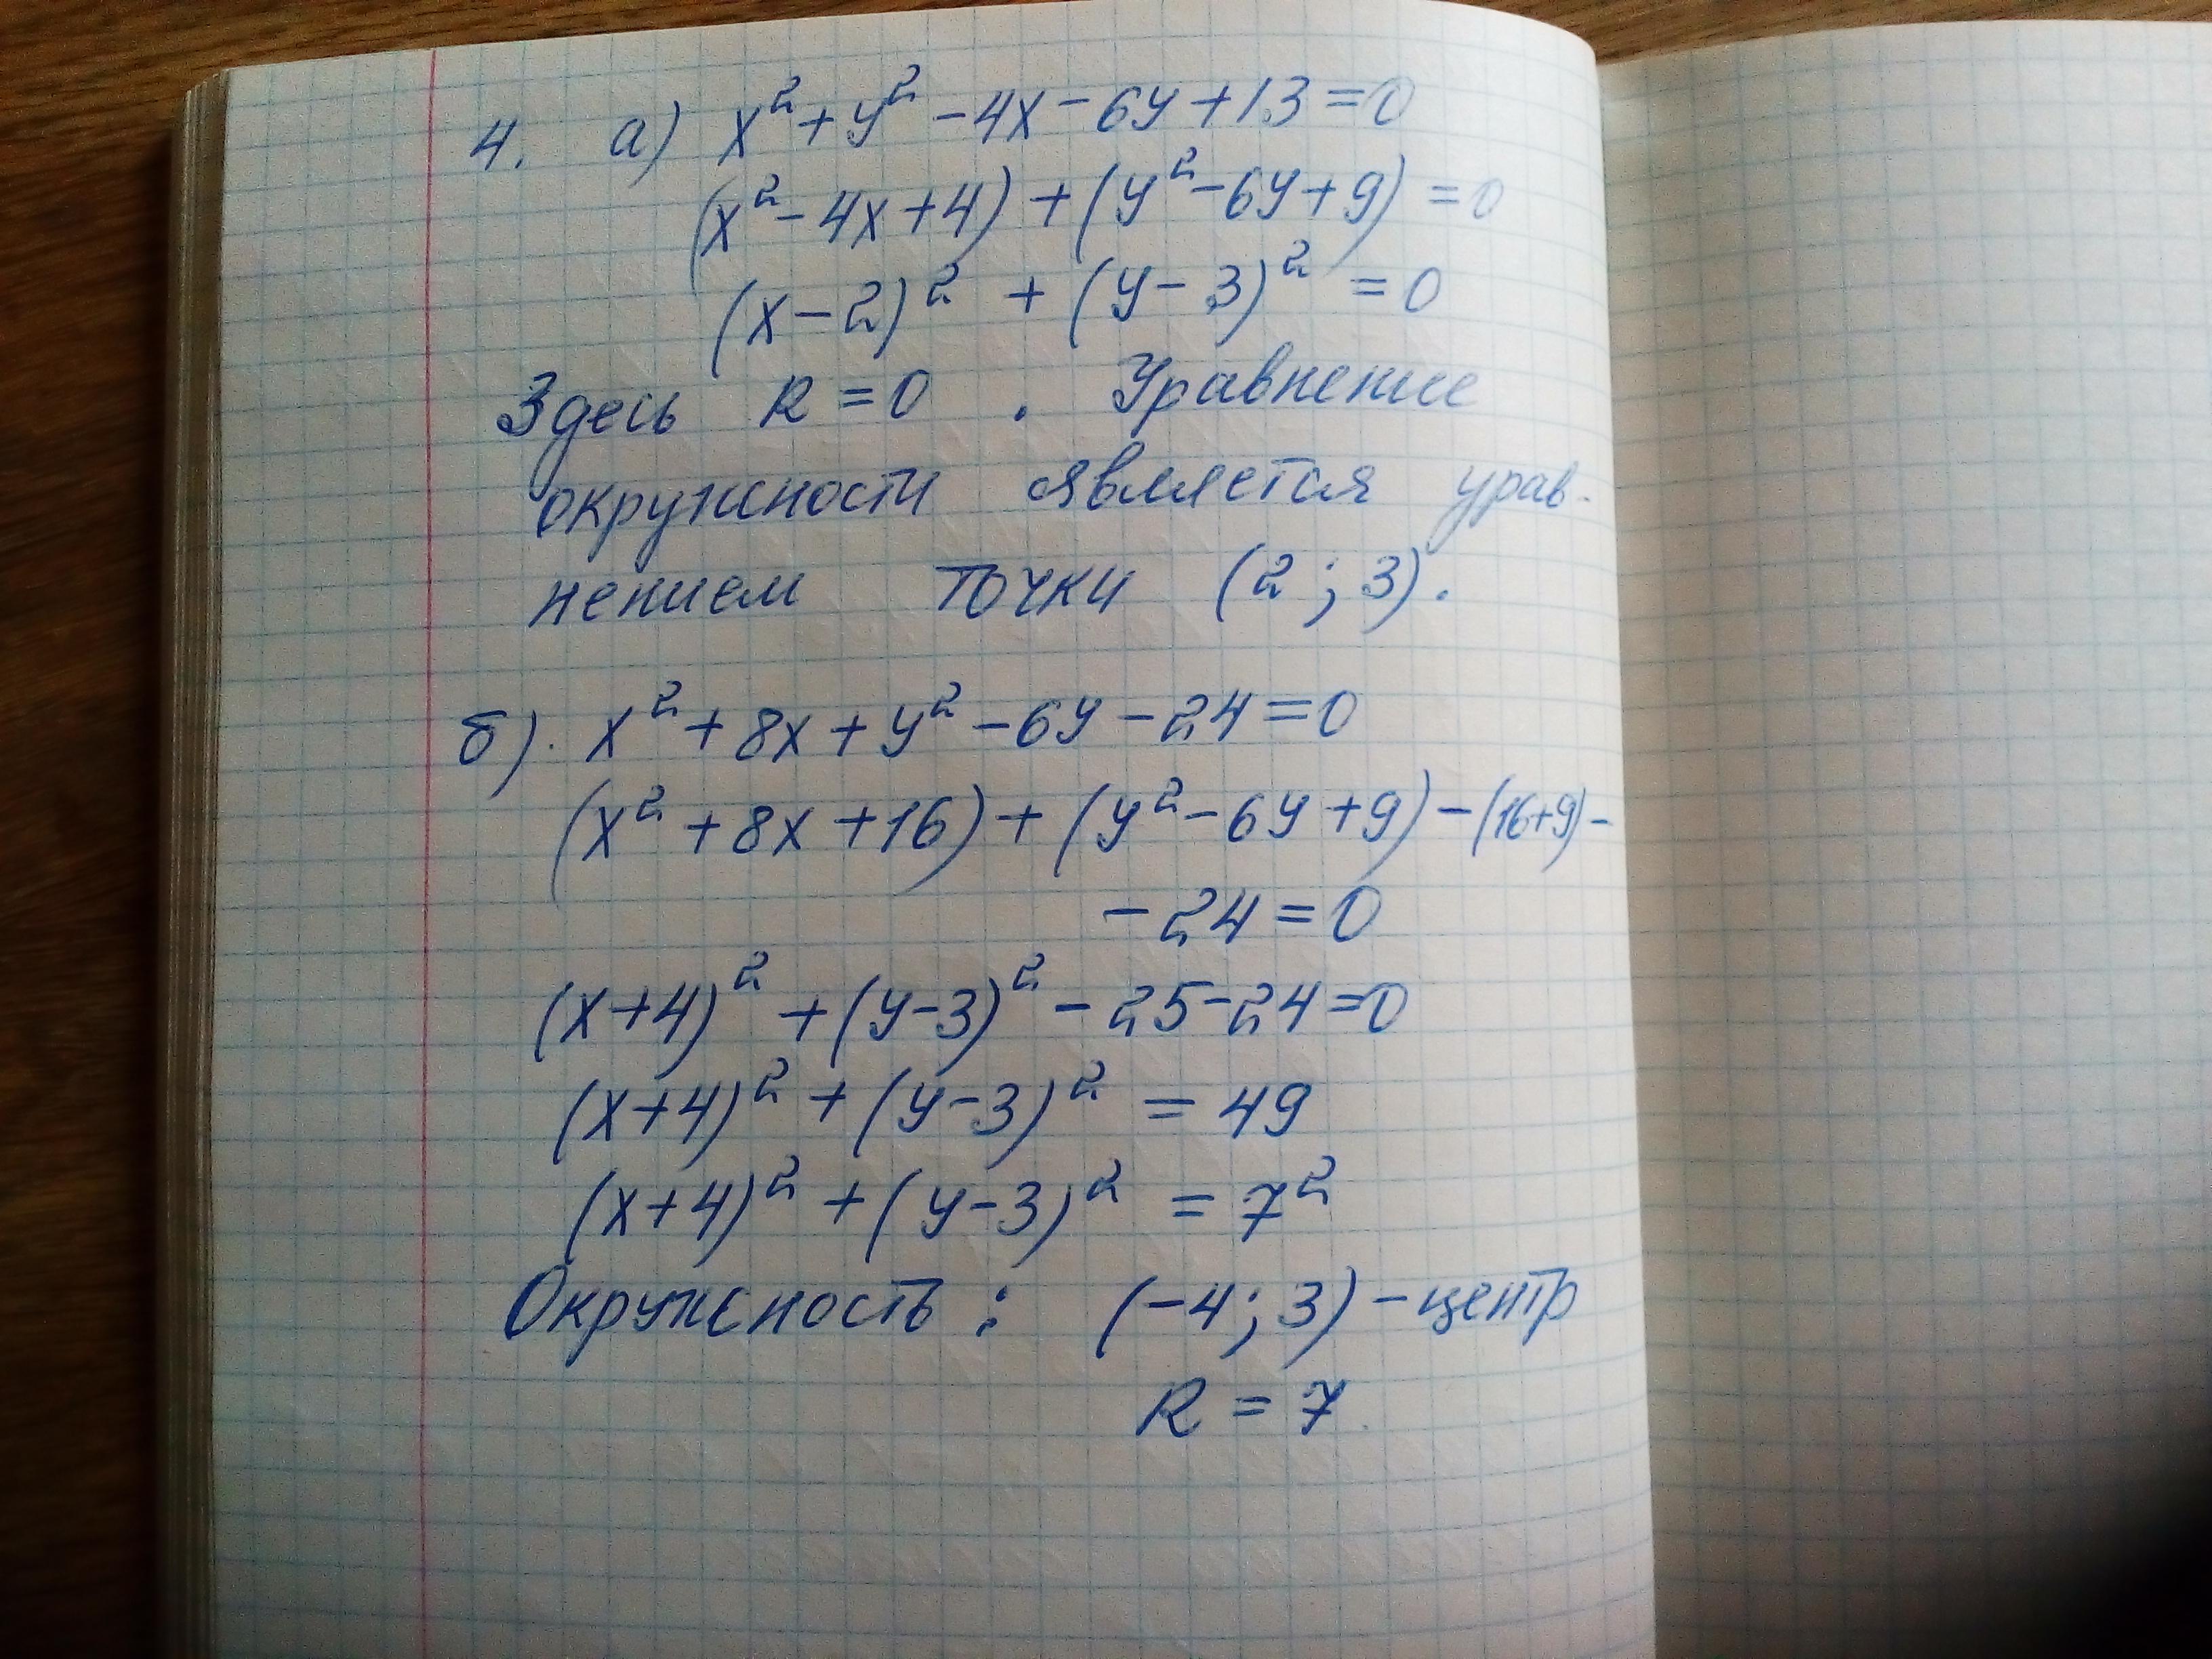 4. а) x² + y² - 4x - 6y + 13 = 0
(x² - 4x + 4) + (y² - 6y + 9) = 0
(x - 2)² + (y - 3)² = 0
Здесь R = 0 . Уравнение
окружности является урав-
нением точки (2 ; 3).
б). x² + 8x + y² - 6y - 24 = 0
(x² + 8x + 16) + (y² - 6y + 9) - (16+9) -
- 24 = 0
(x+4)² + (y-3)² - 25 - 24 = 0
(x+4)² + (y-3)² = 49
(x+4)² + (y-3)² = 7²
Окружность : (-4; 3) - центр
R = 7